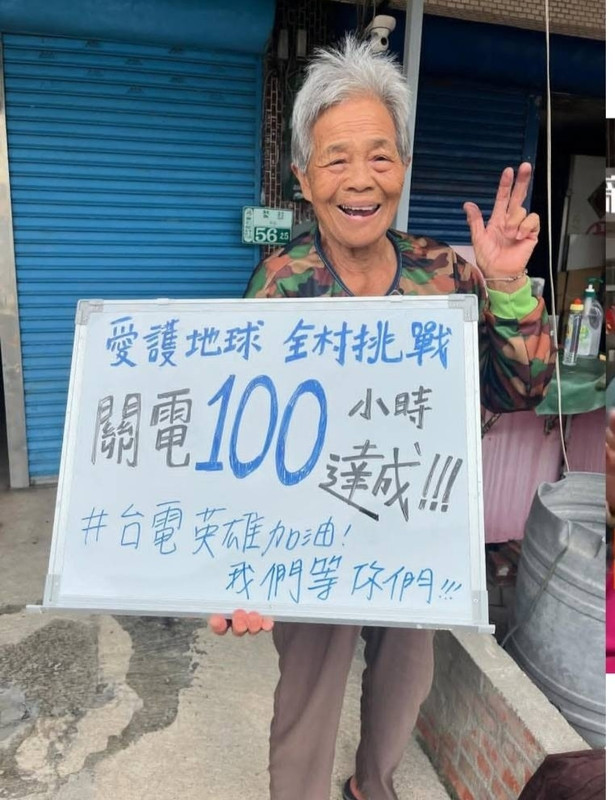 愛護地球 全村挑戰
關電100小時
達成!!!
#台電英雄加油!
我們等你們!!!
56